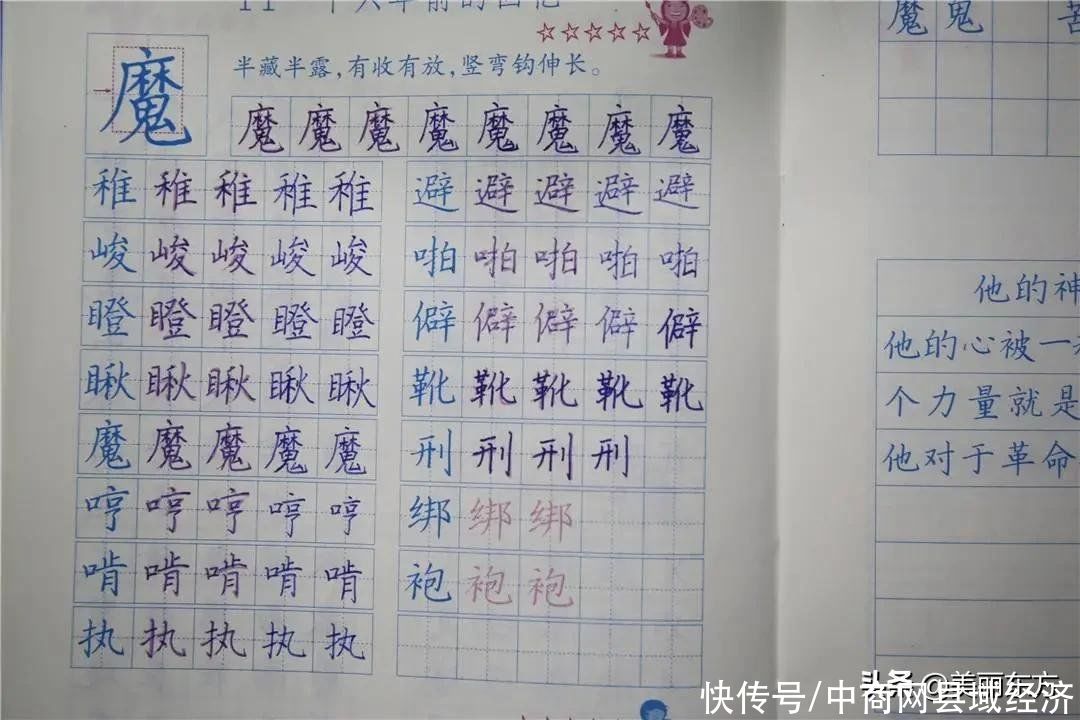 魔
半藏半露,有收有放,竖弯钩伸长。
魔魔魔魔魔魔魔魔
稚稚稚稚稚
避避避避避
峻峻峻峻峻
啪啪啪啪啪
瞪瞪瞪瞪瞪
僻僻僻僻僻
瞅瞅瞅瞅瞅
靴靴靴靴靴
魔魔魔魔魔
刑刑刑刑
哼哼哼哼哼
绑绑绑
啃啃啃啃啃
袍袍袍
执执执执执
魔鬼 苦
他的神
他的心被一
个力量就是
他对于革命
头条 @美丽东方
快传号/中商网县域经济